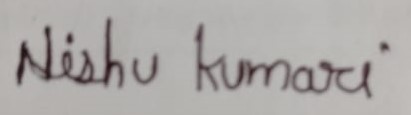 Nishu kumari